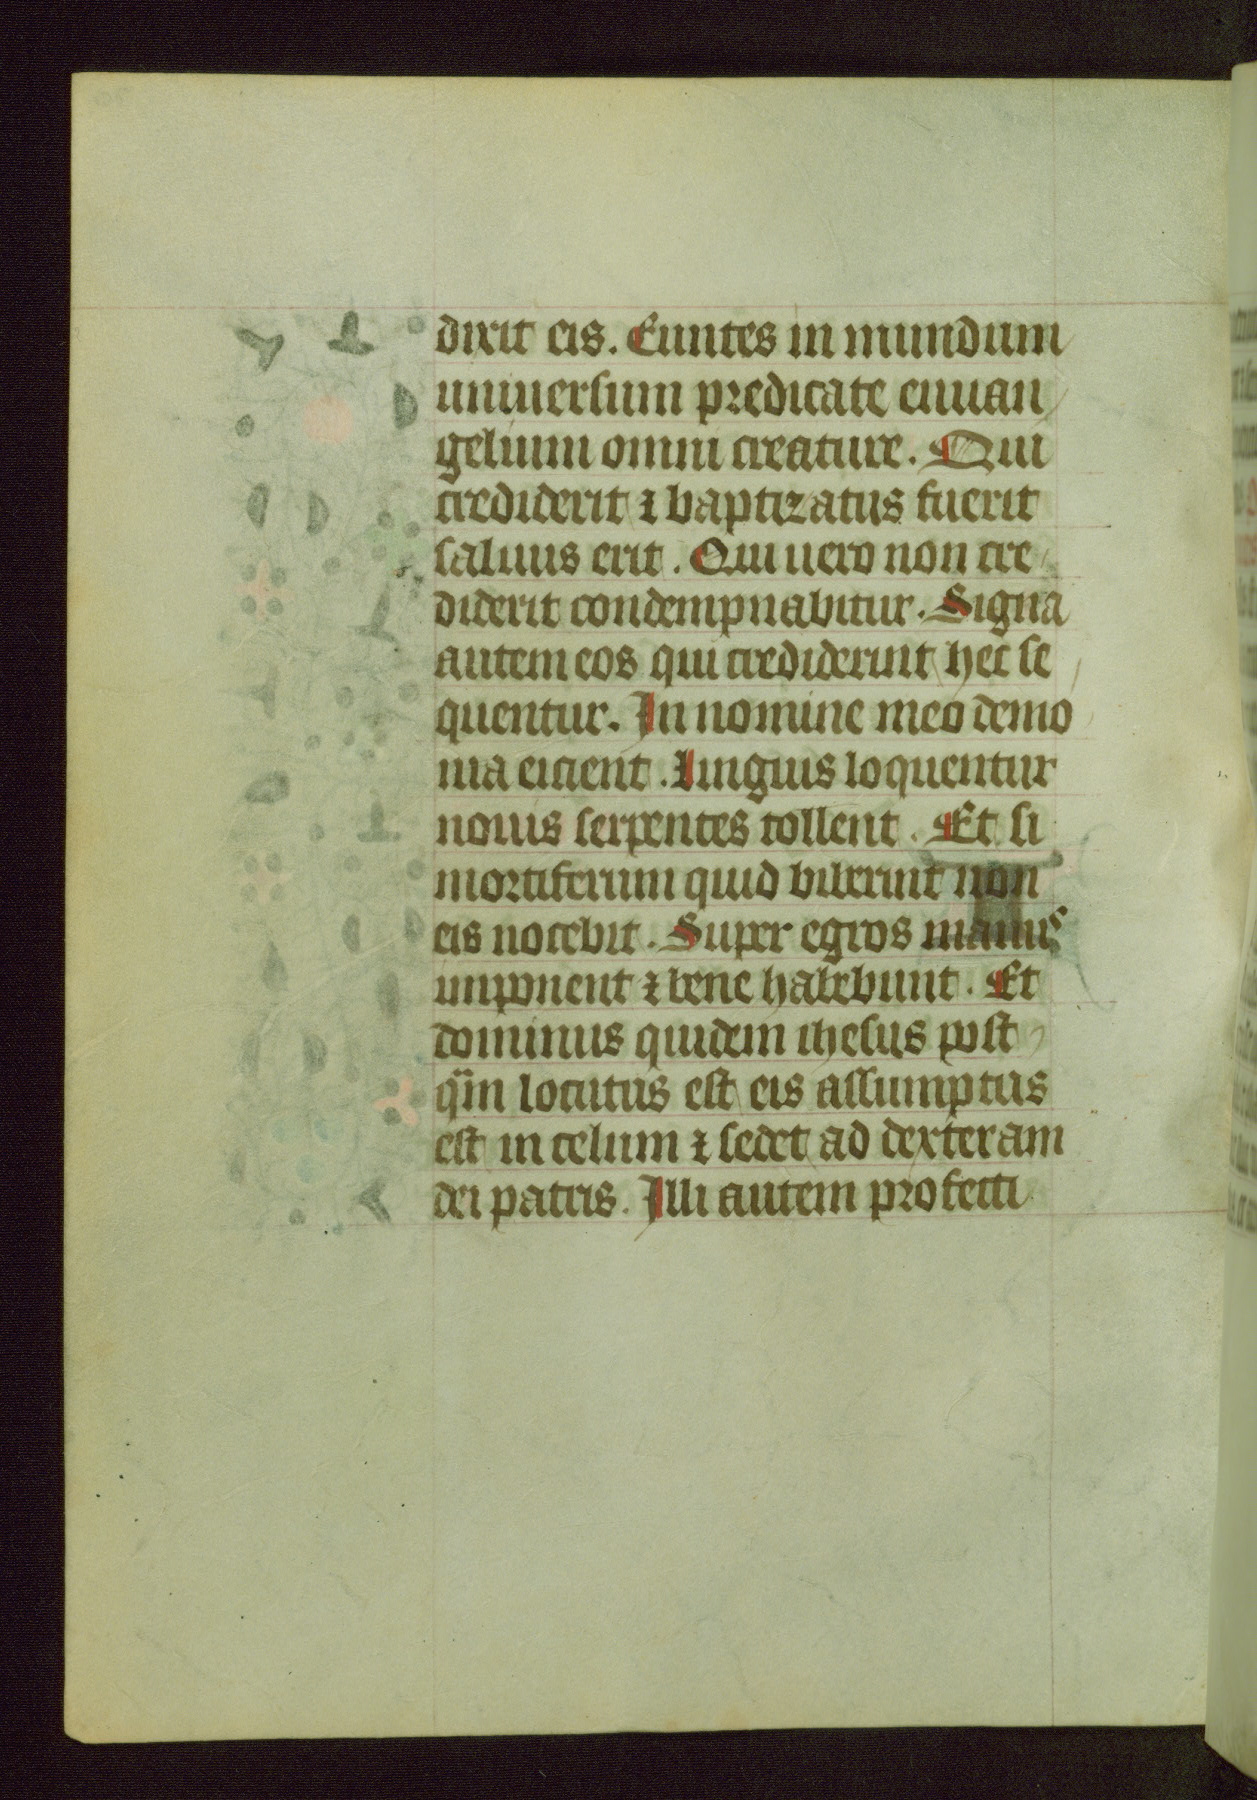 dixit eis. Euntes in mundum
uniuersum predicate euuan
gelium omni creature. Qui
crediderit ⁊ baptizatus fuerit
saluus erit. Qui uero non cre
diderit condempnabitur. Signa
autem eos qui crediderint hec se
quentur. In nomine meo demo
nia eicient. Linguis loquentur
nouis serpentes tollent. Et si
mortiferum quid biberint non
eis nocebit. Super egros manus
imponent ⁊ bene habebunt. Et
dominus quidem ihesus post
qm̄ locutus est eis assumptus
est in celum ⁊ sedet ad dexteram
dei patris. Illi autem profecti